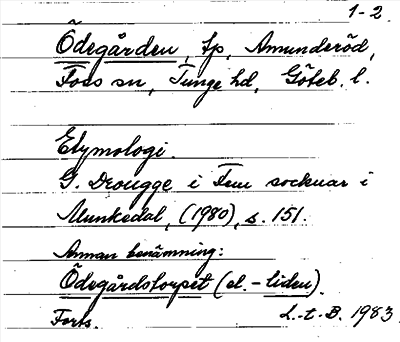 1-2.
Ödegården, lp, Amunderöd,
Foss sn, Tunge hd, Göteb. l.
Etymologi.
G. Drougge i Fem socknar i
Munkedal, (1980), s. 151.
Annan benämning:
Ödegårdstorpet (el. -liden).
Forts. L-t-B. 1983